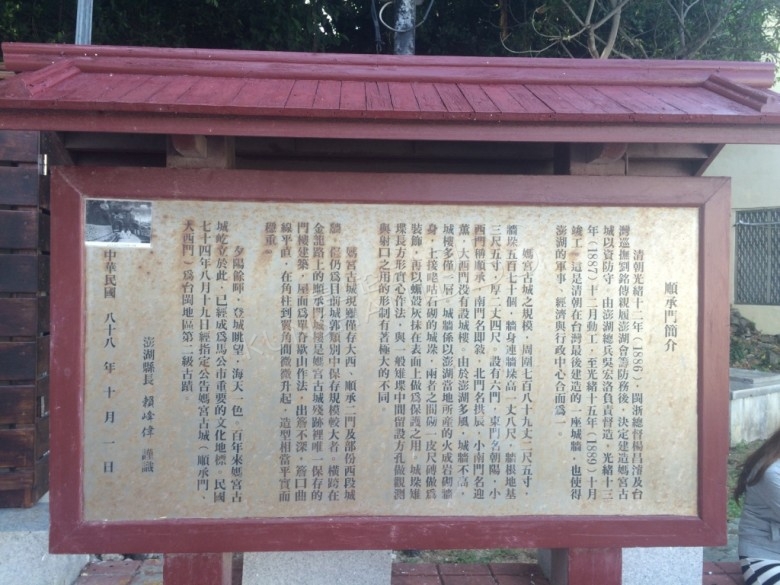 順承門簡介
清朝光緒十二年(1886),閩浙總督楊昌濬及台
灣巡撫劉銘傳親履澎湖會籌防務後,決定建造媽宮古
城以資防守,由澎湖總兵吳宏洛負責督造,光緒十三
年(1887)十二月動工,至光緒十五年(1889)十月
竣工,這是清朝在台灣最後建造的一座城牆,也使得
澎湖的軍事、經濟與行政中心合而為一。
媽宮古城之規模,周圍七百八十九丈二尺五寸,
牆垛五百七十個,牆身連牆垛高一丈八尺,牆根地基
三尺五寸,厚二丈四尺,設有六門,東門名朝陽,小
西門稱順承,南門名即敘,北門名拱辰,小南門名迎
薰,大西門沒有設城樓,由於澎湖多風,城牆不高,
城樓多僅一層,城牆係以澎湖當地所產的火成岩砌牆
身,上後砌咕石砌的城垛,兩者之間砌一皮尺磚做為
裝飾,再以螺殼灰抹在表面上做為保護之用,城垛雉
堞長方形實心作法,與一般雉堞中間留設方孔做觀測
與射口之用的形制有著極大的不同。
媽宮古城現應僅存大西、順承二門及部份西段城
牆,但仍為目前城郭類別中保存規模較大者,橫跨在
金龍路上的順承門城樓是媽宮古城殘跡裡唯一保存的
門樓建築,屋面為單脊歇山作法,出簷不深,簷口曲
線平直,在角柱到翼角間微微升起,造型相當平實而
穩重。
夕陽餘暉,登城眺望,海天一色。百年來媽宮古
城屹立於此,已經成為馬公市重要的文化地標。民國
七十四年八月十九日經指定公告媽宮古城(順承門,
大西門)為台閩地區第二級古蹟
澎湖縣長 賴峰偉 謹識
中華民國 八十八 年 十 月 一 日